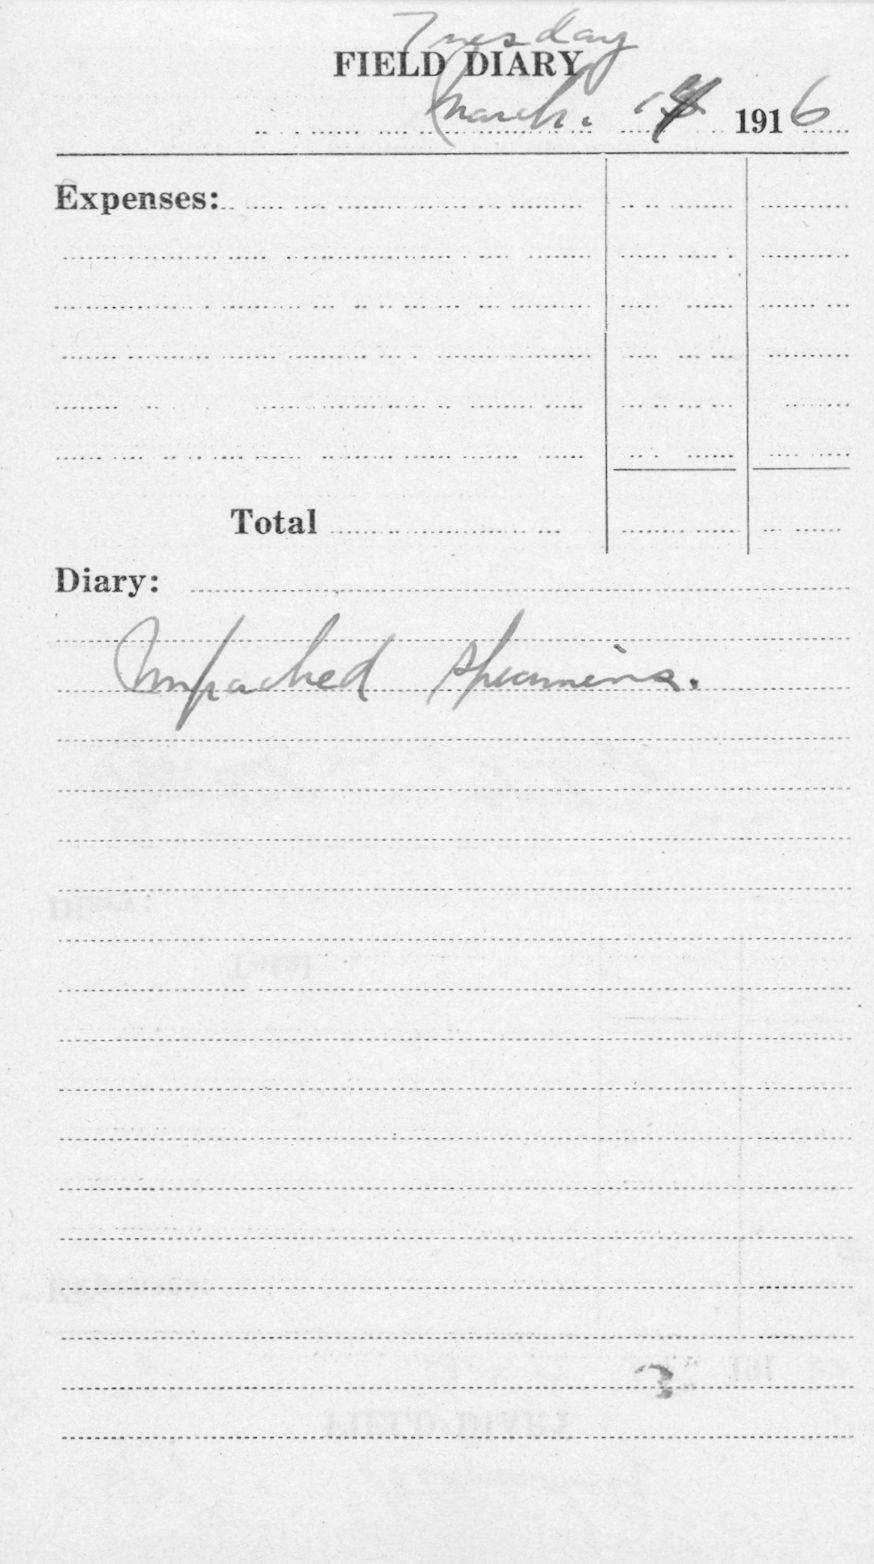 Tuesday
FIELD DIARY
March. 14 1916
Expenses:
Total
Diary:
Unpacked specimens.